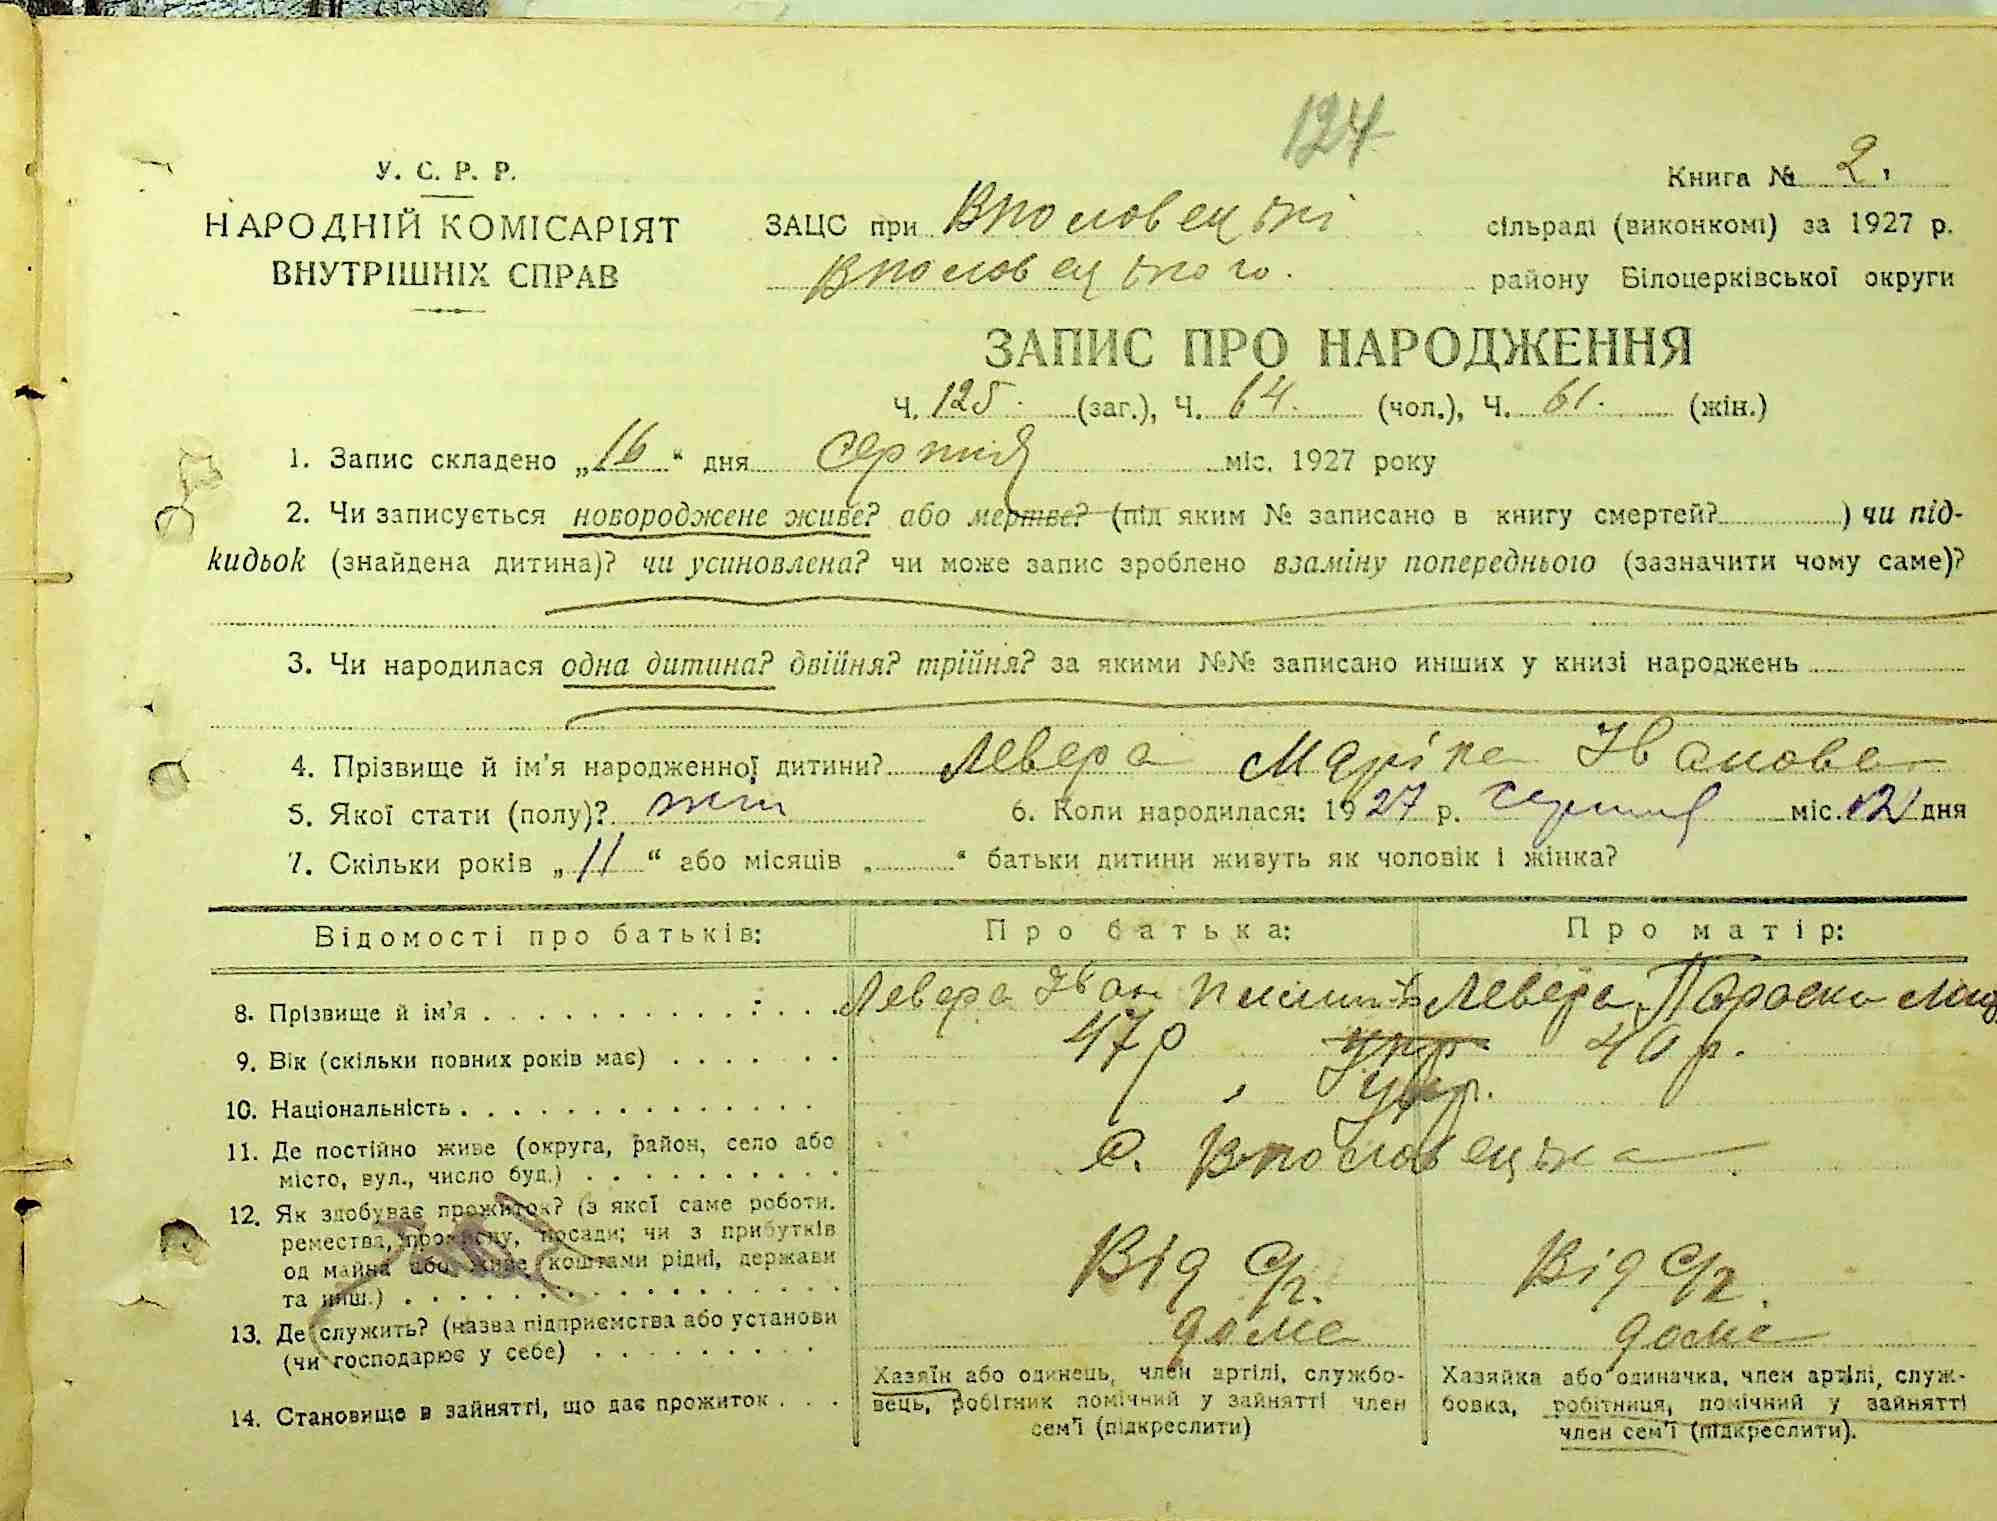 124
У. С. Р. Р.
НАРОДНІЙ КОМІСАРІЯТ
ВНУТРІШНІХ СПРАВ
Книга № 2
ЗАЦС при Вполовецькі сільраді (виконкомі) за 1927 р.
Вполовецького. району Білоцерківської округи
ЗАПИС ПРО НАРОДЖЕННЯ
Ч. 125. (заг.), Ч. 64. (чол.), Ч. 61. (жін.)
1. Запис складено „16“ дня серпня міс. 1927 року
2. Чи записується новороджене живе? або мертве? (під яким № записано в книгу смертей? ) чи під-
кидьок (знайдена дитина)? чи усиновлена? чи може запис зроблено взаміну попереднього (зазначити чому саме)?
3. Чи народилася одна дитина? двійня? трійня? за якими №№ записано инших у книзі народжень
4. Прізвище й ім'я народженної дитини? Левера Маріка Іванова
5. Якої стати (полу)? жін 6. Коли народилася: 1927 р. серпня міс. 12 дня
7. Скільки років „11“ або місяців „ “ батьки дитини живуть як чоловік і жінка?
Відомості про батьків: Про батька: Про матір:
8. Прізвище й ім'я Левера Іван Левера Параска
9. Вік (скільки повних років має) 47р укр. 40 р.
10. Національність Укр.
11. Де постійно живе (округа, район, село або
місто, вул., число буд.) с. Вполовецька
12. Як здобуває прожиток? (з якої саме роботи,
ремества, промислу, посади; чи з прибутків
од майна або живе коштами рідні, держави
та инш.) Від с/г. Від с/г.
13. Де служить? (назва підприємства або установи
(чи господарює у себе) дома дома
14. Становище в зайнятті, що дає прожиток
Хазяїн або одинець, член артілі, службо-
вець, робітник помічний у зайнятті член
сем'ї (підкреслити)
Хазяйка або одиначка, член артілі, служ-
бовка, робітниця, помічний у зайнятті
член сем'ї (підкреслити).